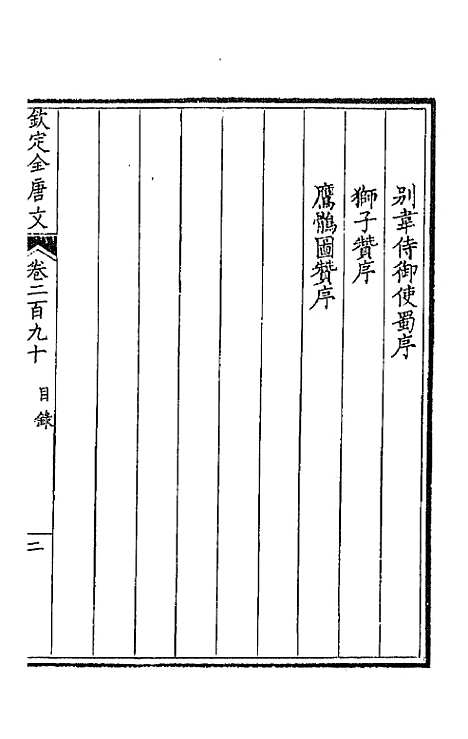 別韋侍御使蜀序
獅子贊序
鷹鶻圖贊序
欽定全唐文
卷二百九十
目錄
二